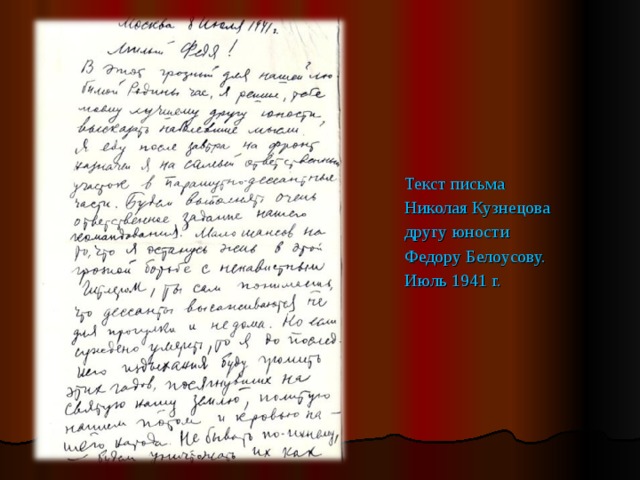 Москва 8 Июля 1941 г.
Милый Федя!
В этот грозный для нашей лю-
бимой Родины час, я решил, тебе
моему лучшему другу юности,
высказать наболевшие мысли.
Я еду после завтра на фронт
назначен я на самый ответственный
участок в парашутно-дессантные
части. Будем выполнять очень
ответственное задание нашего
командования. Мало шансов на
то, что я останусь жив в этой
грозной борьбе с ненавистным
Гитлером, ты сам понимаешь,
что дессанты высаживаются не
для прогулки и не дома. Но если
суждено умереть, то я до послед-
него издыхания буду громить
этих гадов, посягнувших на
святую нашу землю, политую
нашим потом и кровью на-
шего народа. Не бывать по-ихнему,
будем уничтожать их как
Текст письма
Николая Кузнецова
другу юности
Федору Белоусову.
Июль 1941 г.